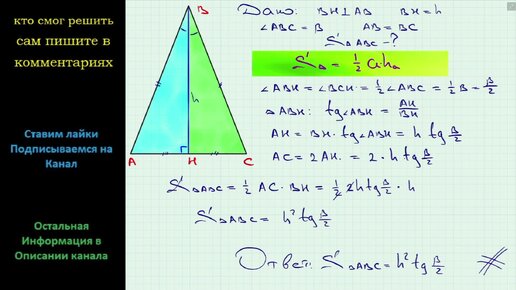 кто смог решить
сам пишите в
комментариях
Ставим лайки
Подписываемся на
Канал
Остальная
Информация в
Описании канала
B
h
A
H
C
Дано: BH⊥AB BH=h
∠ABC = β AB=BC
S△ABC-?
S△ = 1/2 a·hₐ
∠ABH = ∠BCH = 1/2 ∠ABC = 1/2 β = β/2
△ABH: tg∠ABH = AH/BH
AH = BH·tg∠ABH = h tg β/2
AC = 2AH = 2·h tg β/2
S△ABC = 1/2 AC·BH = 1/2 2h tg β/2 · h
S△ABC = h² tg β/2
Ответ: S△ABC = h² tg β/2